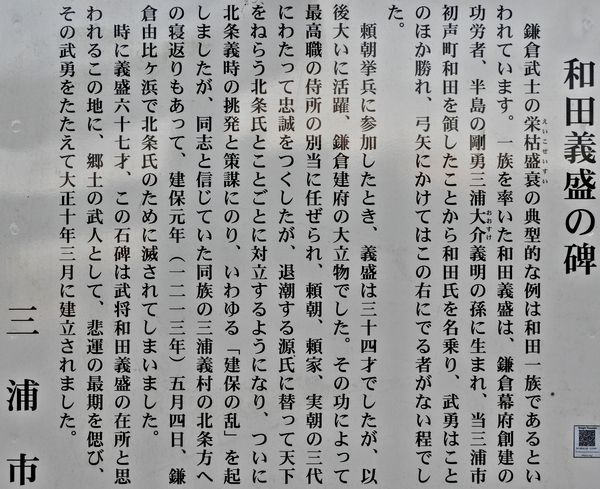 和田義盛の碑
鎌倉武士の栄枯盛衰の典型的な例は和田一族であるとい
えいこせいすい
われています。一族を率いた和田義盛は、鎌倉幕府創建の
功労者、半島の剛勇三浦大介義明の孫に生まれ、当三浦市
おおすけ
初声町和田を領したことから和田氏を名乗り、武勇はこと
のほか勝れ、弓矢にかけてはこの右にでる者がない程でし
た。
頼朝挙兵に参加したとき、義盛は三十四才でしたが、以
後大いに活躍、鎌倉建府の大立物でした。その功によって
最高職の侍所の別当に任ぜられ、頼朝、頼家、実朝の三代
にわたって忠誠をつくしたが、退潮する源氏に替って天下
をねらう北条氏とことごとに対立するようになり、ついに
北条義時の挑発と策謀にのり、いわゆる「建保の乱」を起
しましたが、同志と信じていた同族の三浦義村の北条方へ
の寝返りもあって、建保元年（一二一三年）五月四日、鎌
倉由比ヶ浜で北条氏のために滅されてしまいました。
時に義盛六十七才、この石碑は武将和田義盛の在所と思
われるこの地に、郷土の武人として、悲運の最期を偲び、
その武勇をたたえて大正十年三月に建立されました。
三浦市